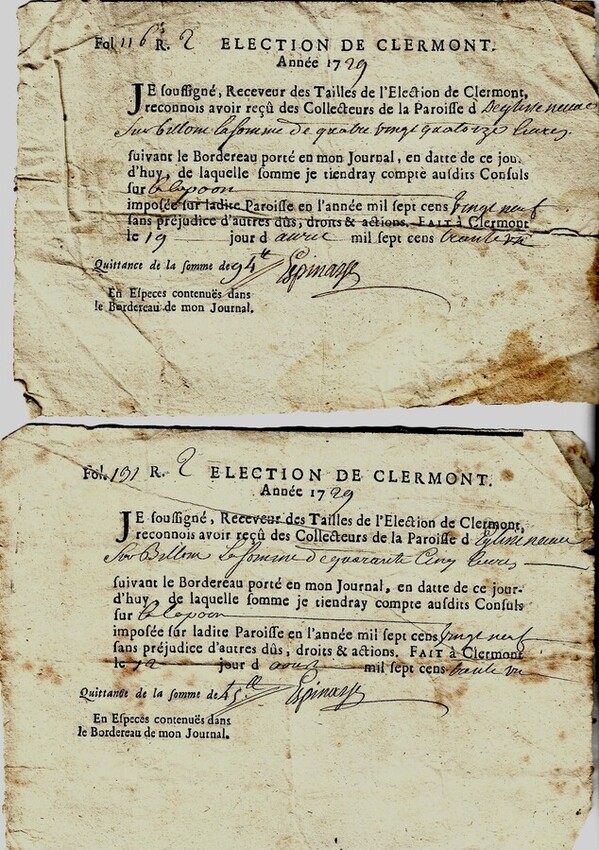 Fol. 116 R. 2 ELECTION DE CLERMONT.
Année 1729
JE souſſigné, Receveur des Tailles de l'Election de Clermont,
reconnois avoir reçû des Collecteurs de la Paroiſſe d Deglise neuve
Sur Billom la somme de quatre vingt quatorze livres
ſuivant le Bordereau porté en mon Journal, en datte de ce jour
d'huy, de laquelle ſomme je tiendray compte auſdits Conſuls
ſur
impoſée ſur ladite Paroiſſe en l'année mil ſept cens vingt neuf
ſans préjudice d'autres dûs, droits & actions. FAIT à Clermont
le 19 jour d avril mil ſept cens trante un
Quittance de la ſomme de 94 lt Espinasse
En Eſpeces contenuës dans
le Bordereau de mon Journal.
Fol. 191 R. 2 ELECTION DE CLERMONT.
Année 1729
JE souſſigné, Receveur des Tailles de l'Election de Clermont,
reconnois avoir reçû des Collecteurs de la Paroiſſe d Eglise neuve
Sur Billom La somme de quarante Cinq livres
ſuivant le Bordereau porté en mon Journal, en datte de ce jour-
d'huy, de laquelle ſomme je tiendray compte auſdits Conſuls
ſur
impoſée ſur ladite Paroiſſe en l'année mil ſept cens vingt neuf
ſans préjudice d'autres dûs, droits & actions. FAIT à Clermont
le 12 jour d aoust mil ſept cens trante un
Quittance de la ſomme de 45 lt Espinasse
En Eſpeces contenuës dans
le Bordereau de mon Journal.